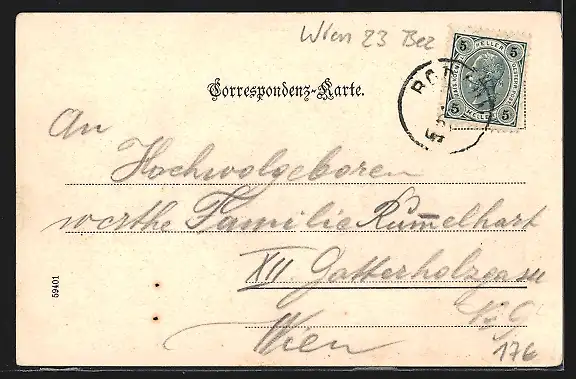 Wien 23 Bez
Correspondenz-Karte.
5 HELLER 5
5 HELLER 5
An
Hochwolgeboren
werthe Familie Rummelhart
XII Gatterholzgasse
Wien
176
59401